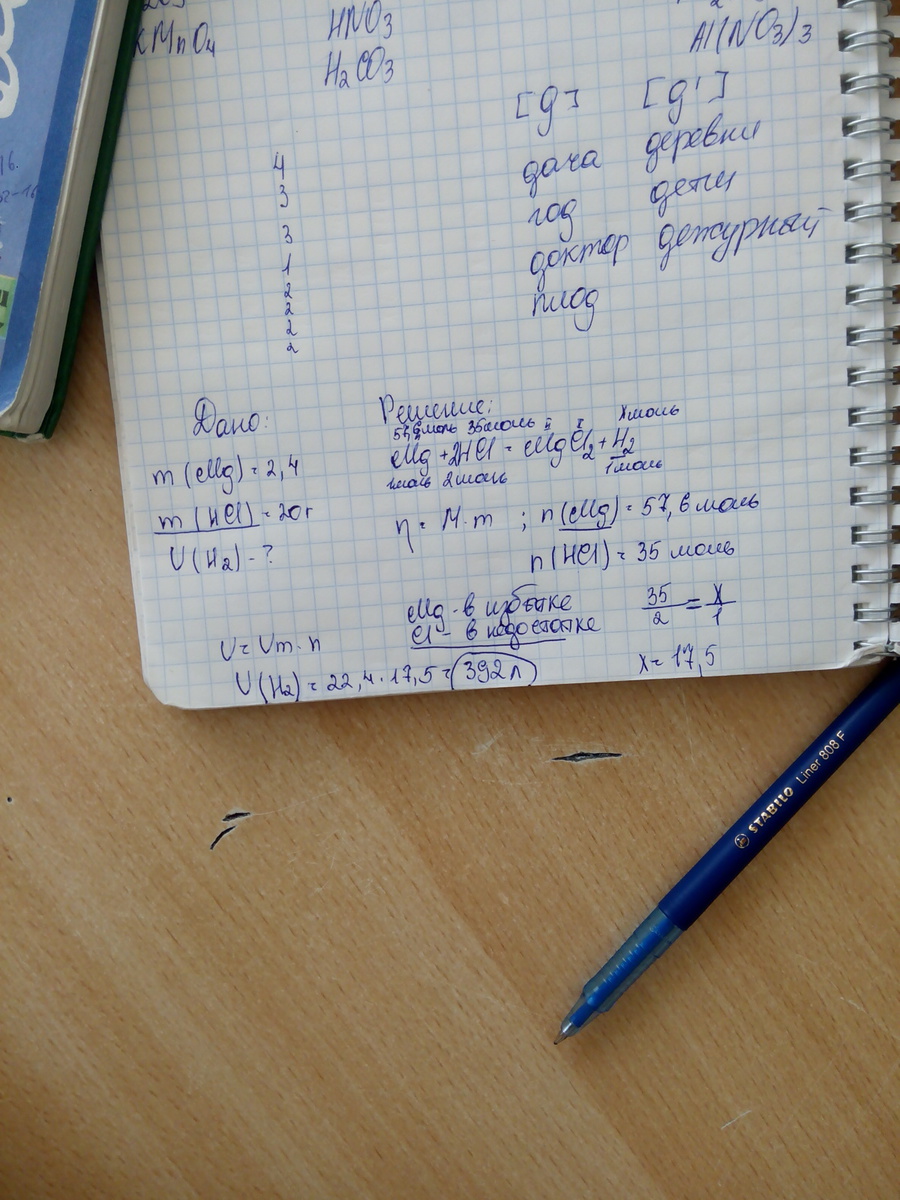 KMnO4
HNO3
H2CO3
Al(NO3)3
[д] [д']
дача деревни
год дети
доктор дежурный
плод
4
3
3
1
2
2
2
2
Дано:
m(Mg) = 2,4
m(HCl) = 20г
V(H2) - ?
Решение:
57,6 моль 35 моль II I x моль
Mg + 2HCl = MgCl2 + H2
1 моль 2 моль 1 моль
n = M · m ; n(Mg) = 57,6 моль
n(HCl) = 35 моль
Mg - в избытке
Cl - в недостатке
35/2 = x/1
x = 17,5
V = Vm · n
V(H2) = 22,4 · 17,5 = 392 л
STABILO Liner 808 F